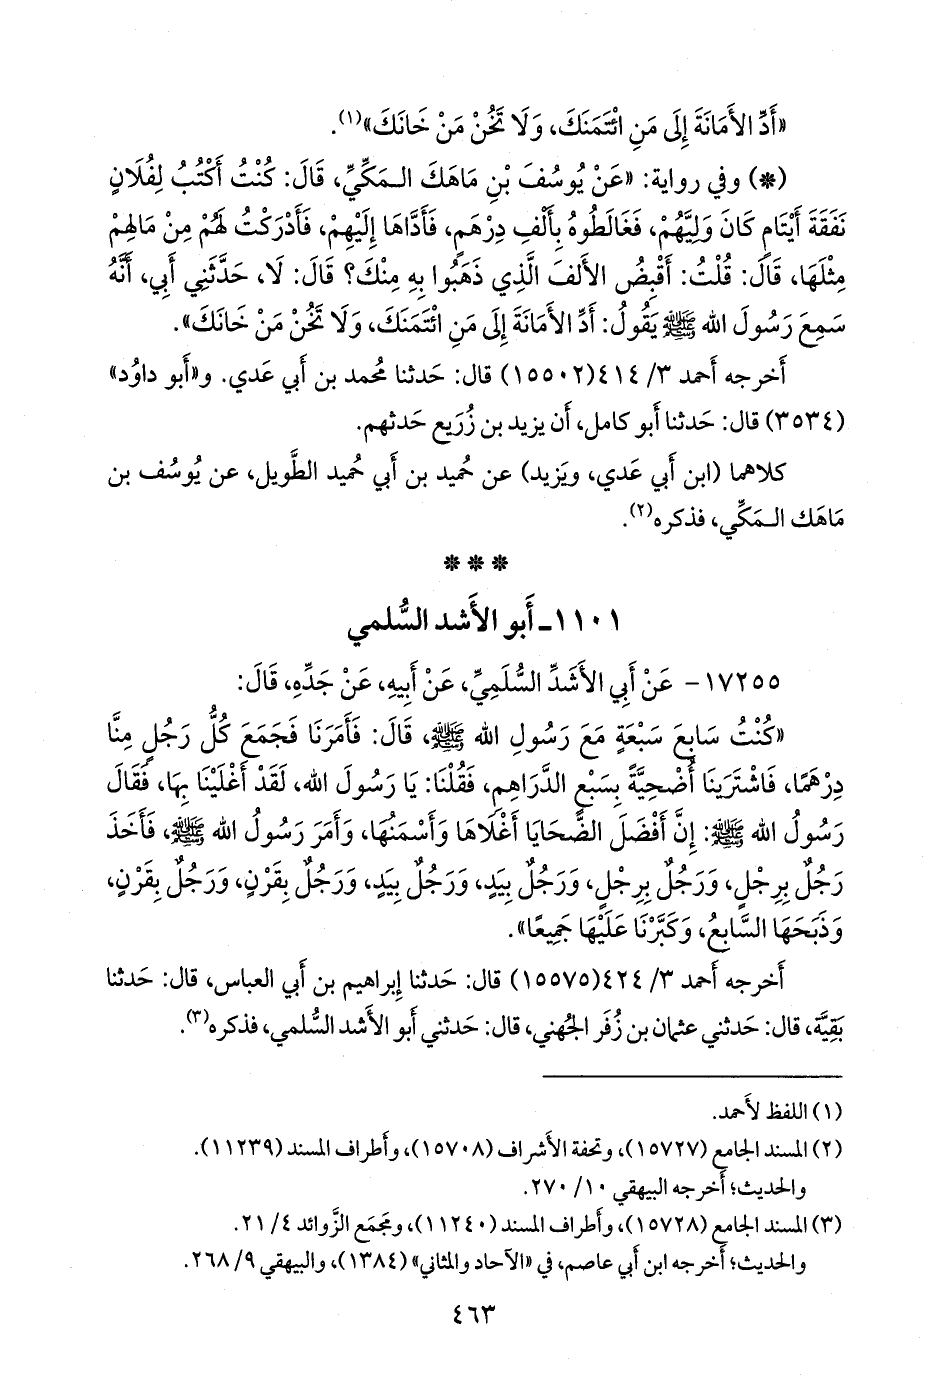 «أَدِّ الأَمَانَةَ إِلَى مَنِ ائْتَمَنَكَ، وَلَا تَخُنْ مَنْ خَانَكَ»(١).
(*) وفي رواية: «عَنْ يُوسُفَ بْنِ مَاهَكَ الـمَكِّيِّ، قَالَ: كُنْتُ أَكْتُبُ لِفُلَانٍ
نَفَقَةَ أَيْتَامٍ كَانَ وَلِيَّهُمْ، فَغَالَطُوهُ بِأَلْفِ دِرْهَمٍ، فَأَدَّاهَا إِلَيْهِمْ، فَأَدْرَكْتُ لَهُمْ مِنْ مَالِهِمْ
مِثْلَهَا، قَالَ: قُلْتُ: أَقْبِضُ الأَلفَ الَّذِي ذَهَبُوا بِهِ مِنْكَ؟ قَالَ: لَا، حَدَّثَنِي أَبِي، أَنَّهُ
سَمِعَ رَسُولَ الله ﷺ يَقُولُ: أَدِّ الأَمَانَةَ إِلَى مَنِ ائْتَمَنَكَ، وَلَا تَخُنْ مَنْ خَانَكَ».
أخرجه أحمد ٣/ ٤١٤(١٥٥٠٢) قال: حَدثنا مُحمد بن أبي عَدي. و«أَبو داوُد»
(٣٥٣٤) قال: حَدثنا أبو كامل، أن يزيد بن زُرَيع حَدثهم.
كلاهما (ابن أَبي عَدي، ويَزيد) عن حُميد بن أَبي حُميد الطَّويل، عن يُوسُف بن
مَاهَك الـمَكِّي، فذكره(٢).
***
١١٠١ـ أَبو الأَشد السُّلمي
١٧٢٥٥- عَنْ أَبِي الأَشَدِّ السُّلَمِيِّ، عَنْ أَبِيهِ، عَنْ جَدِّهِ، قَالَ:
«كُنْتُ سَابِعَ سَبْعَةٍ مَعَ رَسُولِ الله ﷺ، قَالَ: فَأَمَرَنَا فَجَمَعَ كُلُّ رَجُلٍ مِنَّا
دِرْهَمًا، فَاشْتَرَيْنَا أُضْحِيَّةً بِسَبْعِ الدَّرَاهِمِ، فَقُلْنَا: يَا رَسُولَ الله، لَقَدْ أَغْلَيْنَا بِهَا، فَقَالَ
رَسُولُ الله ﷺ: إِنَّ أَفْضَلَ الضَّحَايَا أَغْلَاهَا وَأَسْمَنُهَا، وَأَمَرَ رَسُولُ الله ﷺ، فَأَخَذَ
رَجُلٌ بِرِجْلٍ، وَرَجُلٌ بِرِجْلٍ، وَرَجُلٌ بِيَدٍ، وَرَجُلٌ بِيَدٍ، وَرَجُلٌ بِقَرْنٍ، وَرَجُلٌ بِقَرْنٍ،
وَذَبَحَهَا السَّابِعُ، وَكَبَّرْنَا عَلَيْهَا جَمِيعًا».
أخرجه أحمد ٣/ ٤٢٤(١٥٥٧٥) قال: حَدثنا إبراهيم بن أَبي العباس، قال: حَدثنا
بَقِيَّة، قال: حَدثني عثمان بن زُفَر الجُهني، قال: حَدثني أَبو الأَشد السُّلمي، فذكره(٣).
(١) اللفظ لأَحمد.
(٢) المسند الجامع (١٥٧٢٧)، وتحفة الأشراف (١٥٧٠٨)، وأطراف المسند (١١٢٣٩).
والحديث؛ أخرجه البيهقي ١٠/ ٢٧٠.
(٣) المسند الجامع (١٥٧٢٨)، وأطراف المسند (١١٢٤٠)، ومَجمَع الزَّوائد ٤/ ٢١.
والحديث؛ أخرجه ابن أبي عاصم، في «الآحاد والمثاني» (١٣٨٤)، والبيهقي ٩/ ٢٦٨.
٤٦٣